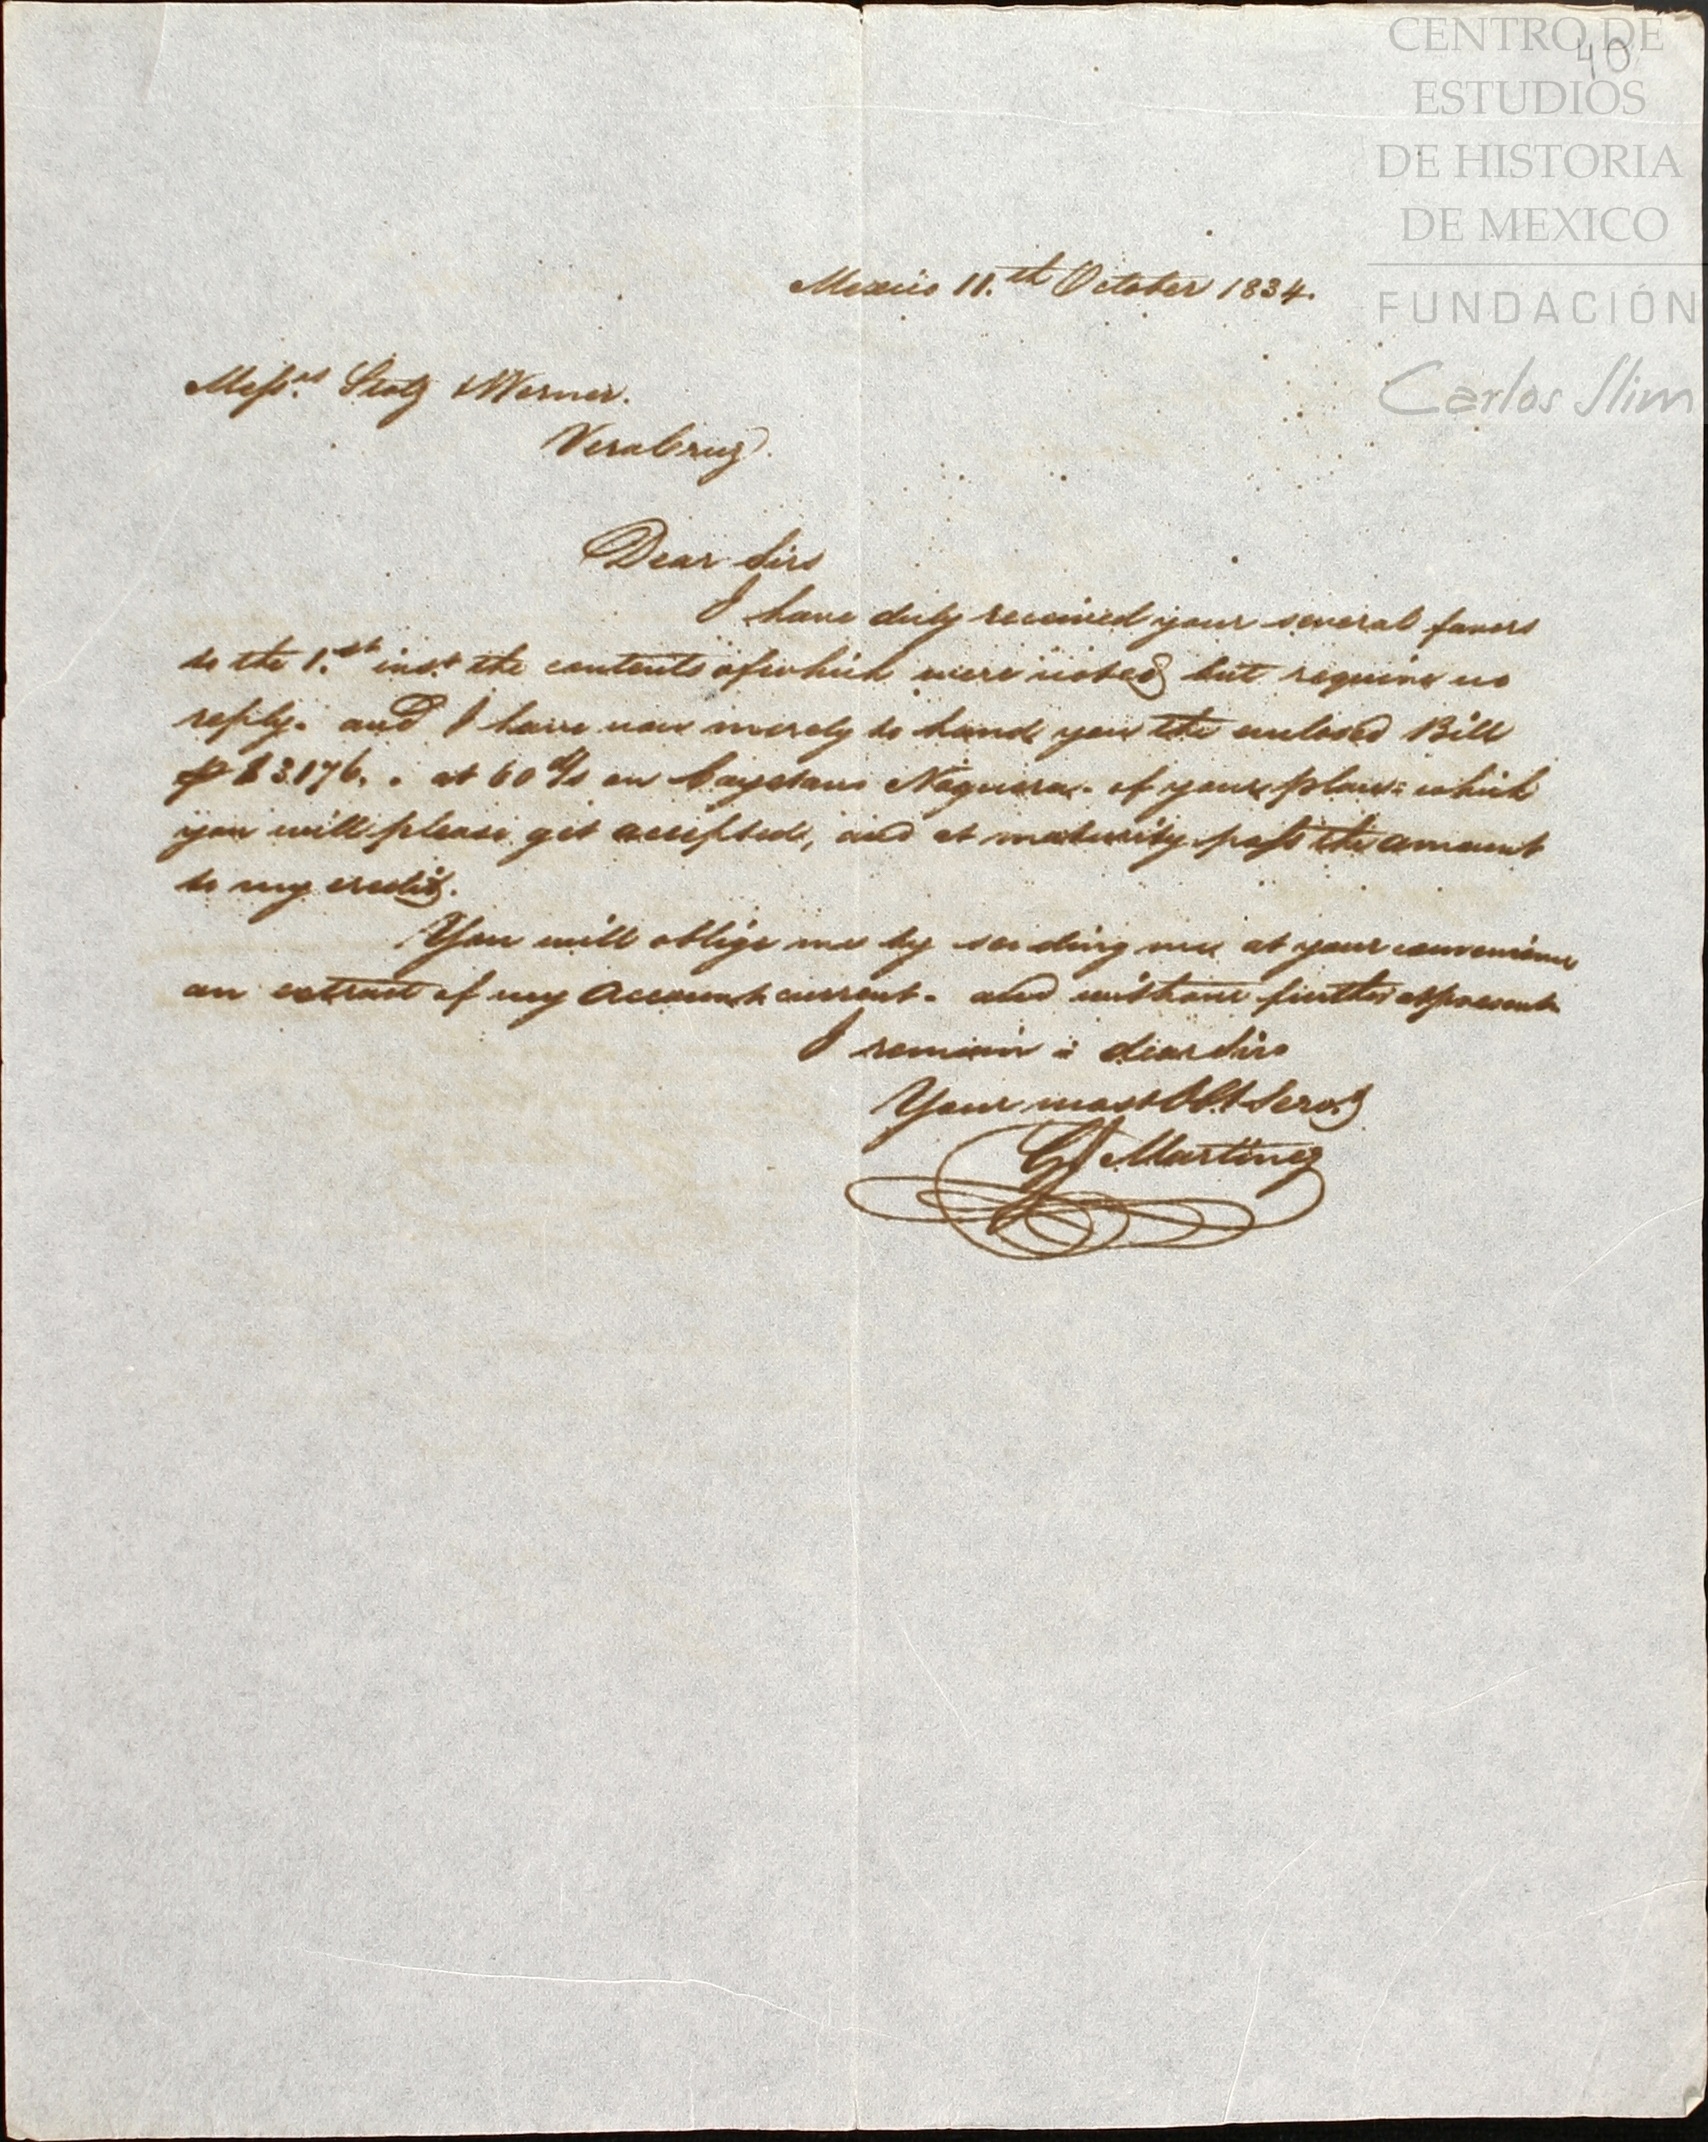 CENTRO DE
ESTUDIOS
DE HISTORIA
DE MEXICO
FUNDACIÓN
Carlos Slim
40
Mexico 11.th October 1834.
Messrs. Stolz & Werner.
VeraCruz.
Dear Sirs
I have duly received your several favors
to the 1.st inst. the contents of which were noted but require no
reply. and I have now merely to hand you the enclosed Bill
3176. . at 60 d/s on Cayetano Noguera. of your place: which
you will please get accepted, and at maturity pass the amount
to my credit.
You will oblige me by sending me at your convenience
an extract of my Account current. and without further at present
I remain dear Sirs
Your most Obt Servt
Martinez